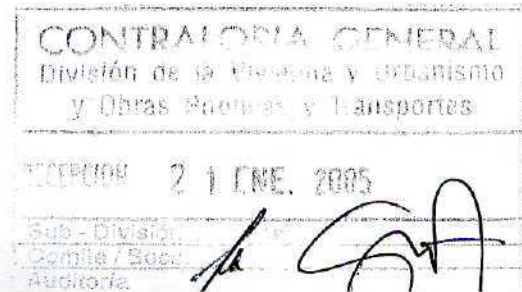 CONTRALORIA GENERAL
División de la Vivienda y Urbanismo
y Obras Públicas y Transportes
RECEPCION 21 ENE. 2005
Sub - División
Comite /
Auditoría